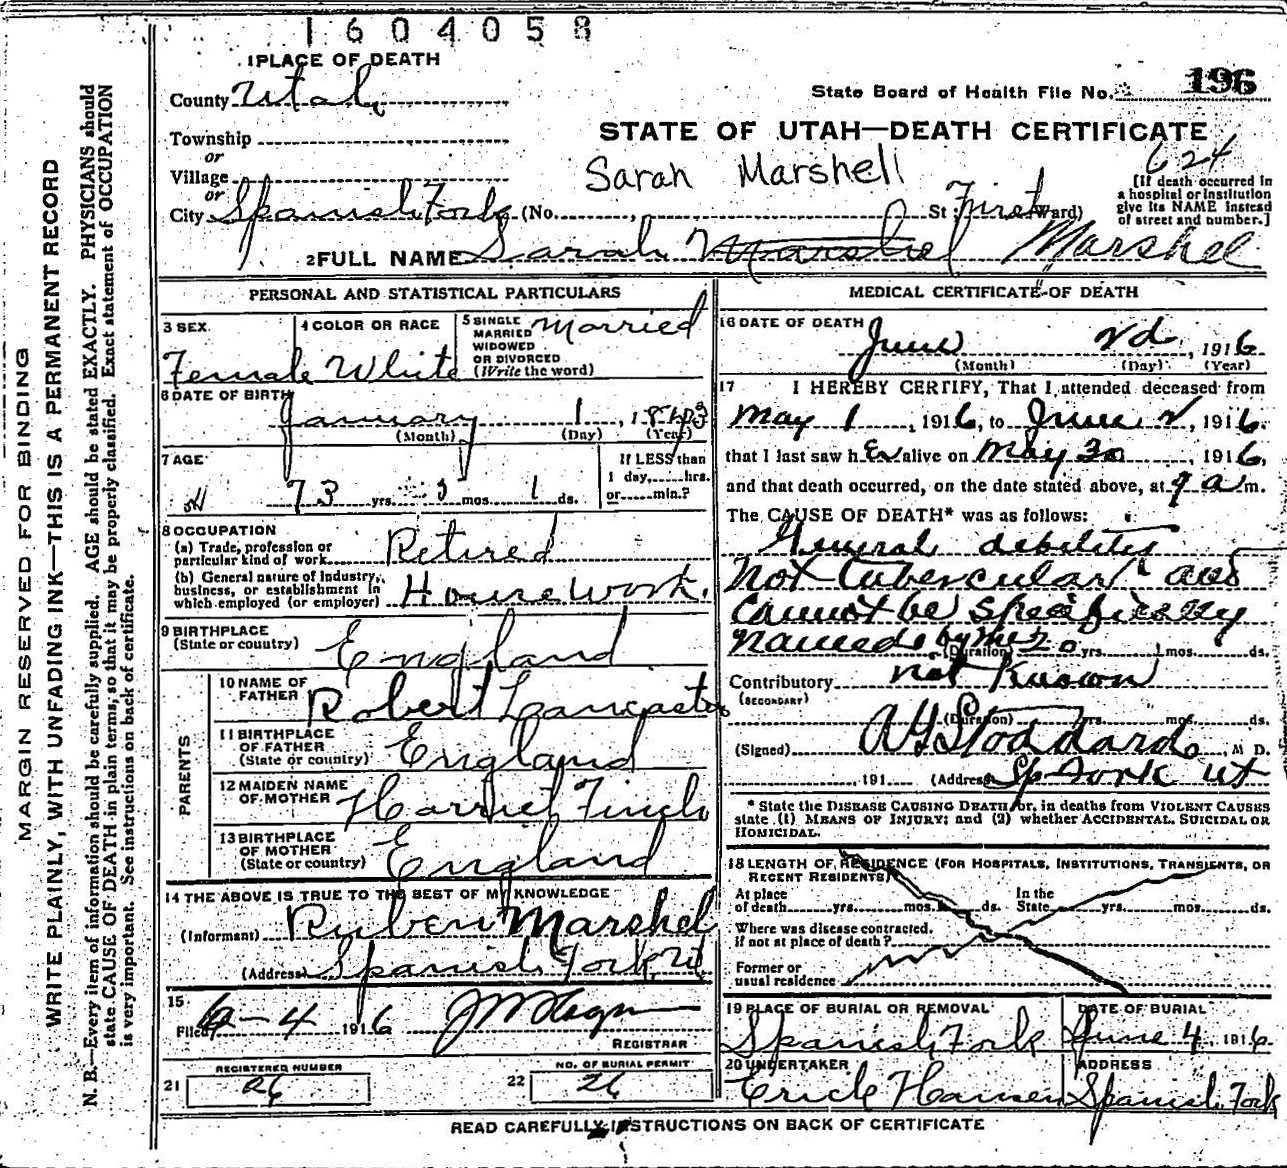 1604058
1 PLACE OF DEATH
County Utah
State Board of Health File No. 196
Township
or
STATE OF UTAH—DEATH CERTIFICATE
624
Village
or
Sarah Marshell
[If death occurred in
a hospital or institution
give its NAME instead
of street and number.]
City Spanish Fork (No. , St First Ward)
2 FULL NAME Sarah Marshel Marshel
MARGIN RESERVED FOR BINDING
WRITE PLAINLY, WITH UNFADING INK—THIS IS A PERMANENT RECORD
N. B.—Every item of information should be carefully supplied. AGE should be stated EXACTLY. PHYSICIANS should
state CAUSE OF DEATH in plain terms, so that it may be properly classified. Exact statement of OCCUPATION
is very important. See instructions on back of certificate.
PERSONAL AND STATISTICAL PARTICULARS
3 SEX
Female
4 COLOR OR RACE
White
5 SINGLE
MARRIED
WIDOWED
OR DIVORCED
(Write the word)
Married
6 DATE OF BIRTH
January 1, 1843
(Month) (Day) (Year)
7 AGE
73 yrs. 5 mos. 1 ds.
If LESS than
1 day, hrs.
or min.?
8 OCCUPATION
(a) Trade, profession or
particular kind of work Retired
(b) General nature of Industry,
business, or establishment in
which employed (or employer) House work.
9 BIRTHPLACE
(State or country) England
PARENTS
10 NAME OF
FATHER Robert Lancaster
11 BIRTHPLACE
OF FATHER
(State or country) England
12 MAIDEN NAME
OF MOTHER Harriet Finch
13 BIRTHPLACE
OF MOTHER
(State or country) England
14 THE ABOVE IS TRUE TO THE BEST OF MY KNOWLEDGE
(Informant) Ruben Marshel
(Address) Spanish Fork, Ut
15
Filed 6-4 1916
REGISTRAR
21 REGISTERED NUMBER
26
22 NO. OF BURIAL PERMIT
26
MEDICAL CERTIFICATE OF DEATH
16 DATE OF DEATH
June 2d, 1916
(Month) (Day) (Year)
17 I HEREBY CERTIFY, That I attended deceased from
May 1, 1916, to June 2, 1916.
that I last saw her alive on May 30, 1916,
and that death occurred, on the date stated above, at 9 a m.
The CAUSE OF DEATH* was as follows:
General debility
Not tubercular and
cannot be specifically
named by me
(Duration) 20 yrs. mos. ds.
Contributory not known
(SECONDARY)
(Duration) yrs. mos. ds.
(Signed) A G Stoddard, M D.
191 (Address) Sp Fork Ut
* State the DISEASE CAUSING DEATH or, in deaths from VIOLENT CAUSES
state (1) MEANS OF INJURY; and (2) whether ACCIDENTAL, SUICIDAL OR
HOMICIDAL.
18 LENGTH OF RESIDENCE (FOR HOSPITALS, INSTITUTIONS, TRANSIENTS, OR
RECENT RESIDENTS)
At place
of death yrs. mos. ds.
In the
State yrs. mos. ds.
Where was disease contracted.
if not at place of death?
Former or
usual residence
19 PLACE OF BURIAL OR REMOVAL
Spanish Fork
DATE OF BURIAL
June 4, 1916
20 UNDERTAKER
Erick Hansen
ADDRESS
Spanish Fork
READ CAREFULLY INSTRUCTIONS ON BACK OF CERTIFICATE